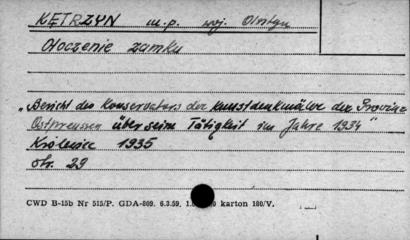 KĘTRZYN m.p. woj. Olsztyn
Otoczenie zamku
„Bericht des Konservators der Kunstdenkmäler der Provinz
Ostpreussen über seine Tätigkeit im Jahre 1934"
Królewiec 1935
str. 29
CWD B-15b Nr 515/P. GDA-809. 6.3.59. karton 180/V.